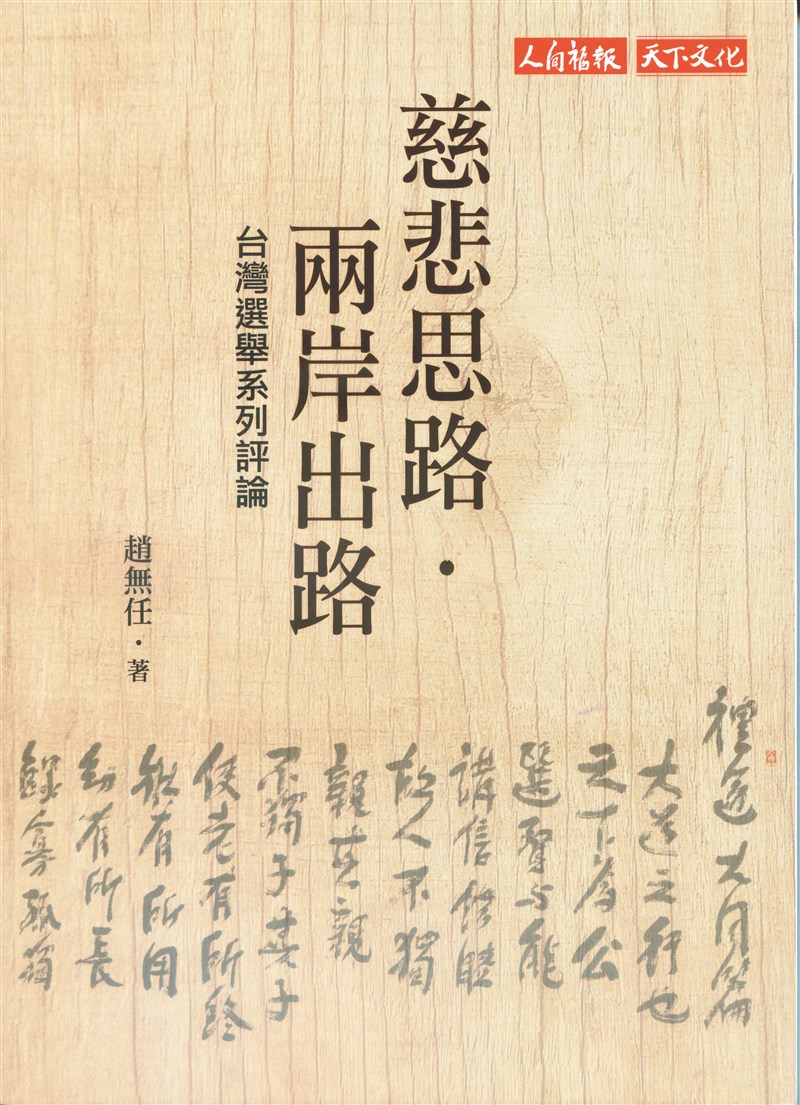 人间福報 天下文化
慈悲思路・
兩岸出路
台灣選舉系列評論
趙無任・著
禮運大同篇
大道之行也
天下為公
選賢与能
講信修睦
故人不獨
親其親
不獨子其子
使老有所終
壯有所用
幼有所長
鰥寡孤獨